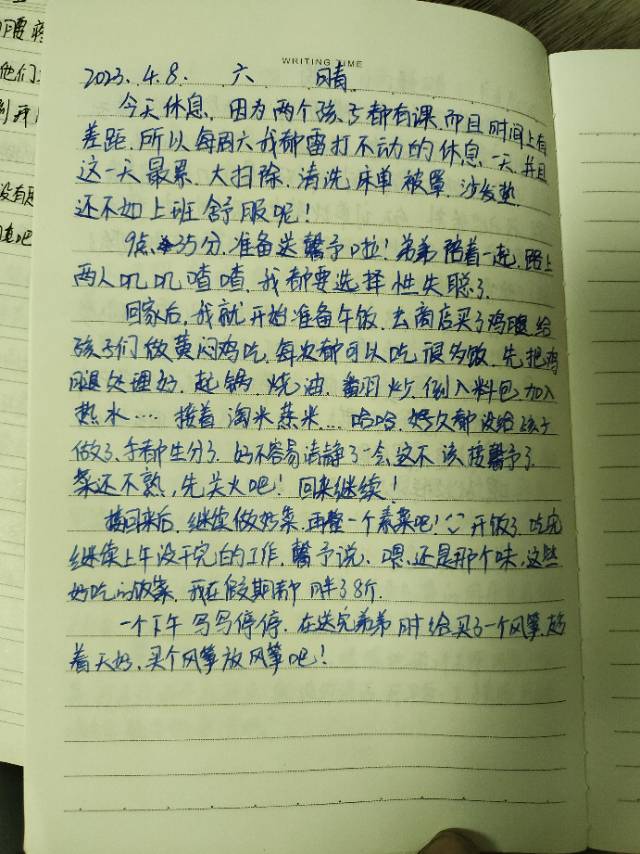 WRITING TIME
2023.4.8. 六 晴
今天休息,因为两个孩子都有课而且时间上有
差距.所以每周六我都雷打不动的休息一天.并且
这一天最累.大扫除.清洗床单被罩.沙发垫.
还不如上班舒服呢!
9点35分.准备送馨予啦!弟弟陪着一起.路上
两人叽叽喳喳.我都要选择性失聪了.
回家后,我就开始准备午饭.去商店买了鸡腿给
孩子们做黄闷鸡吃,每次都可以吃很多饭.先把鸡
腿处理好.起锅 烧油.翻炒.倒入料包.加入
热水....接着淘米蒸米...哈哈.好久都没给孩子
做了.手都生分了.好不容易清静了一会.这不该接馨予了.
菜还不熟,先关火吧!回来继续!
接回来后.继续做炒菜.再整一个素菜吧!开饭了.吃完
继续上午没干完的工作.馨予说、嗯.还是那个味,这些
好吃的饭菜.我在假期都胖了8斤.
一个下午写写停停.在送完弟弟时给买了一个风筝.趁
着天好.买个风筝放风筝吧!
他们
没有
吧